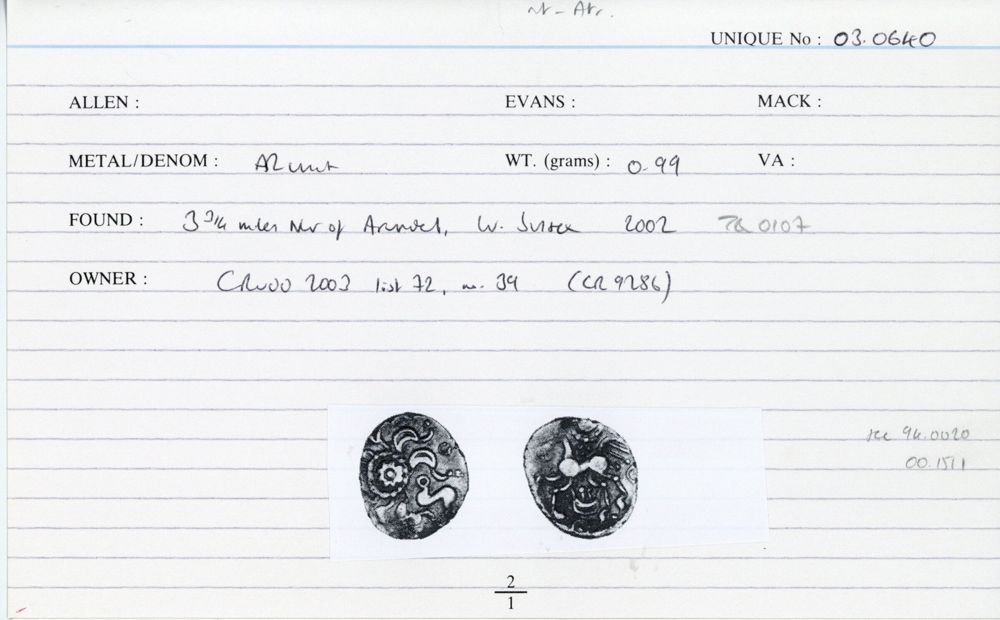 UNIQUE No : 03.0640
ALLEN :
EVANS :
MACK :
METAL/DENOM : AR unit
WT. (grams) : 0.99
VA :
FOUND : 3 3/4 miles NW of Arundel, W. Sussex 2002 TQ 0107
OWNER : CR 2003 list 72, no. 39 (CR 9286)
see 94.0020
00.1511
2
1